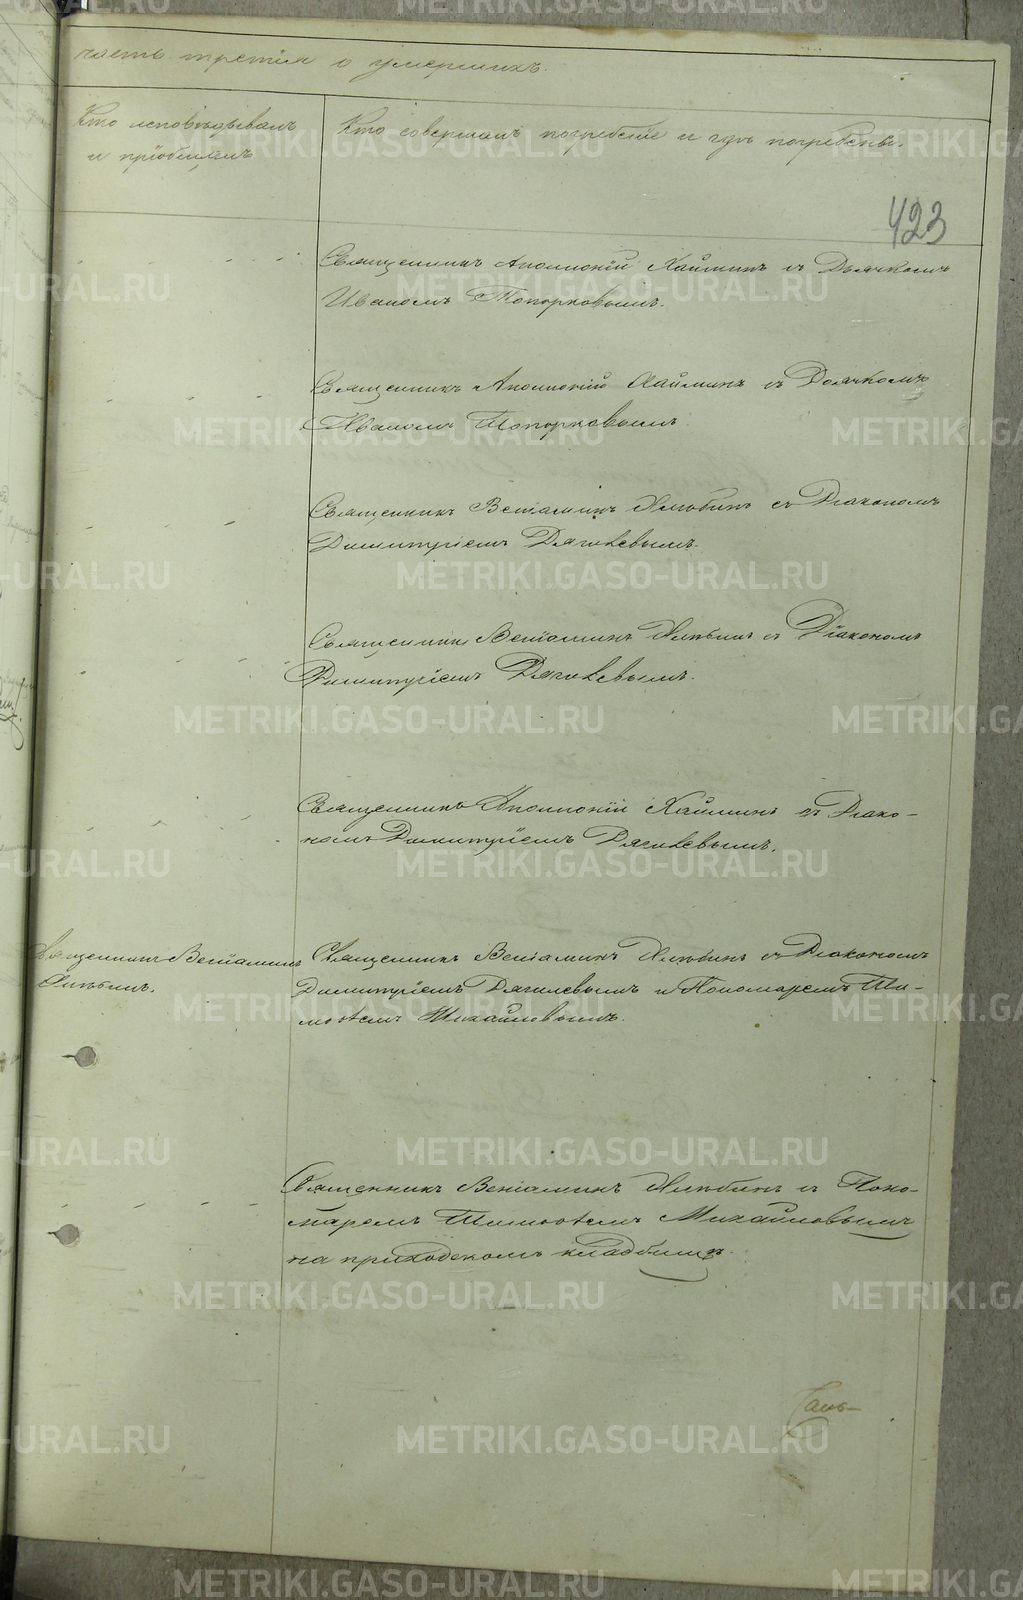 часть третія о умершихъ.
Кто исповѣдывалъ
и пріобщалъ
Кто совершалъ погребеніе и гдѣ погребены.
423
Священникъ Аполлоній Хаймин съ Дьячкомъ
Иваномъ Топорковымъ.
Священникъ Аполлоній Хайминъ съ Дьячкомъ
Иваномъ Топорковымъ.
Священникъ Веніаминъ съ Діакономъ
Димитріемъ Дягилевымъ.
Священникъ Веніаминъ съ Діакономъ
Димитріемъ Дягилевымъ.
Священникъ Аполлоній Хайминъ съ Діако-
номъ Димитріемъ Дягилевымъ.
Священникъ Веніаминъ
Священникъ Веніаминъ съ Діакономъ
Димитріемъ Дягилевымъ и Пономаремъ Ти-
моѳеемъ Михайловымъ.
Священникъ Веніаминъ съ Поно-
маремъ Тимоѳеемъ Михайловымъ
на приходскомъ кладбищѣ.
METRIKI.GASO-URAL.RU